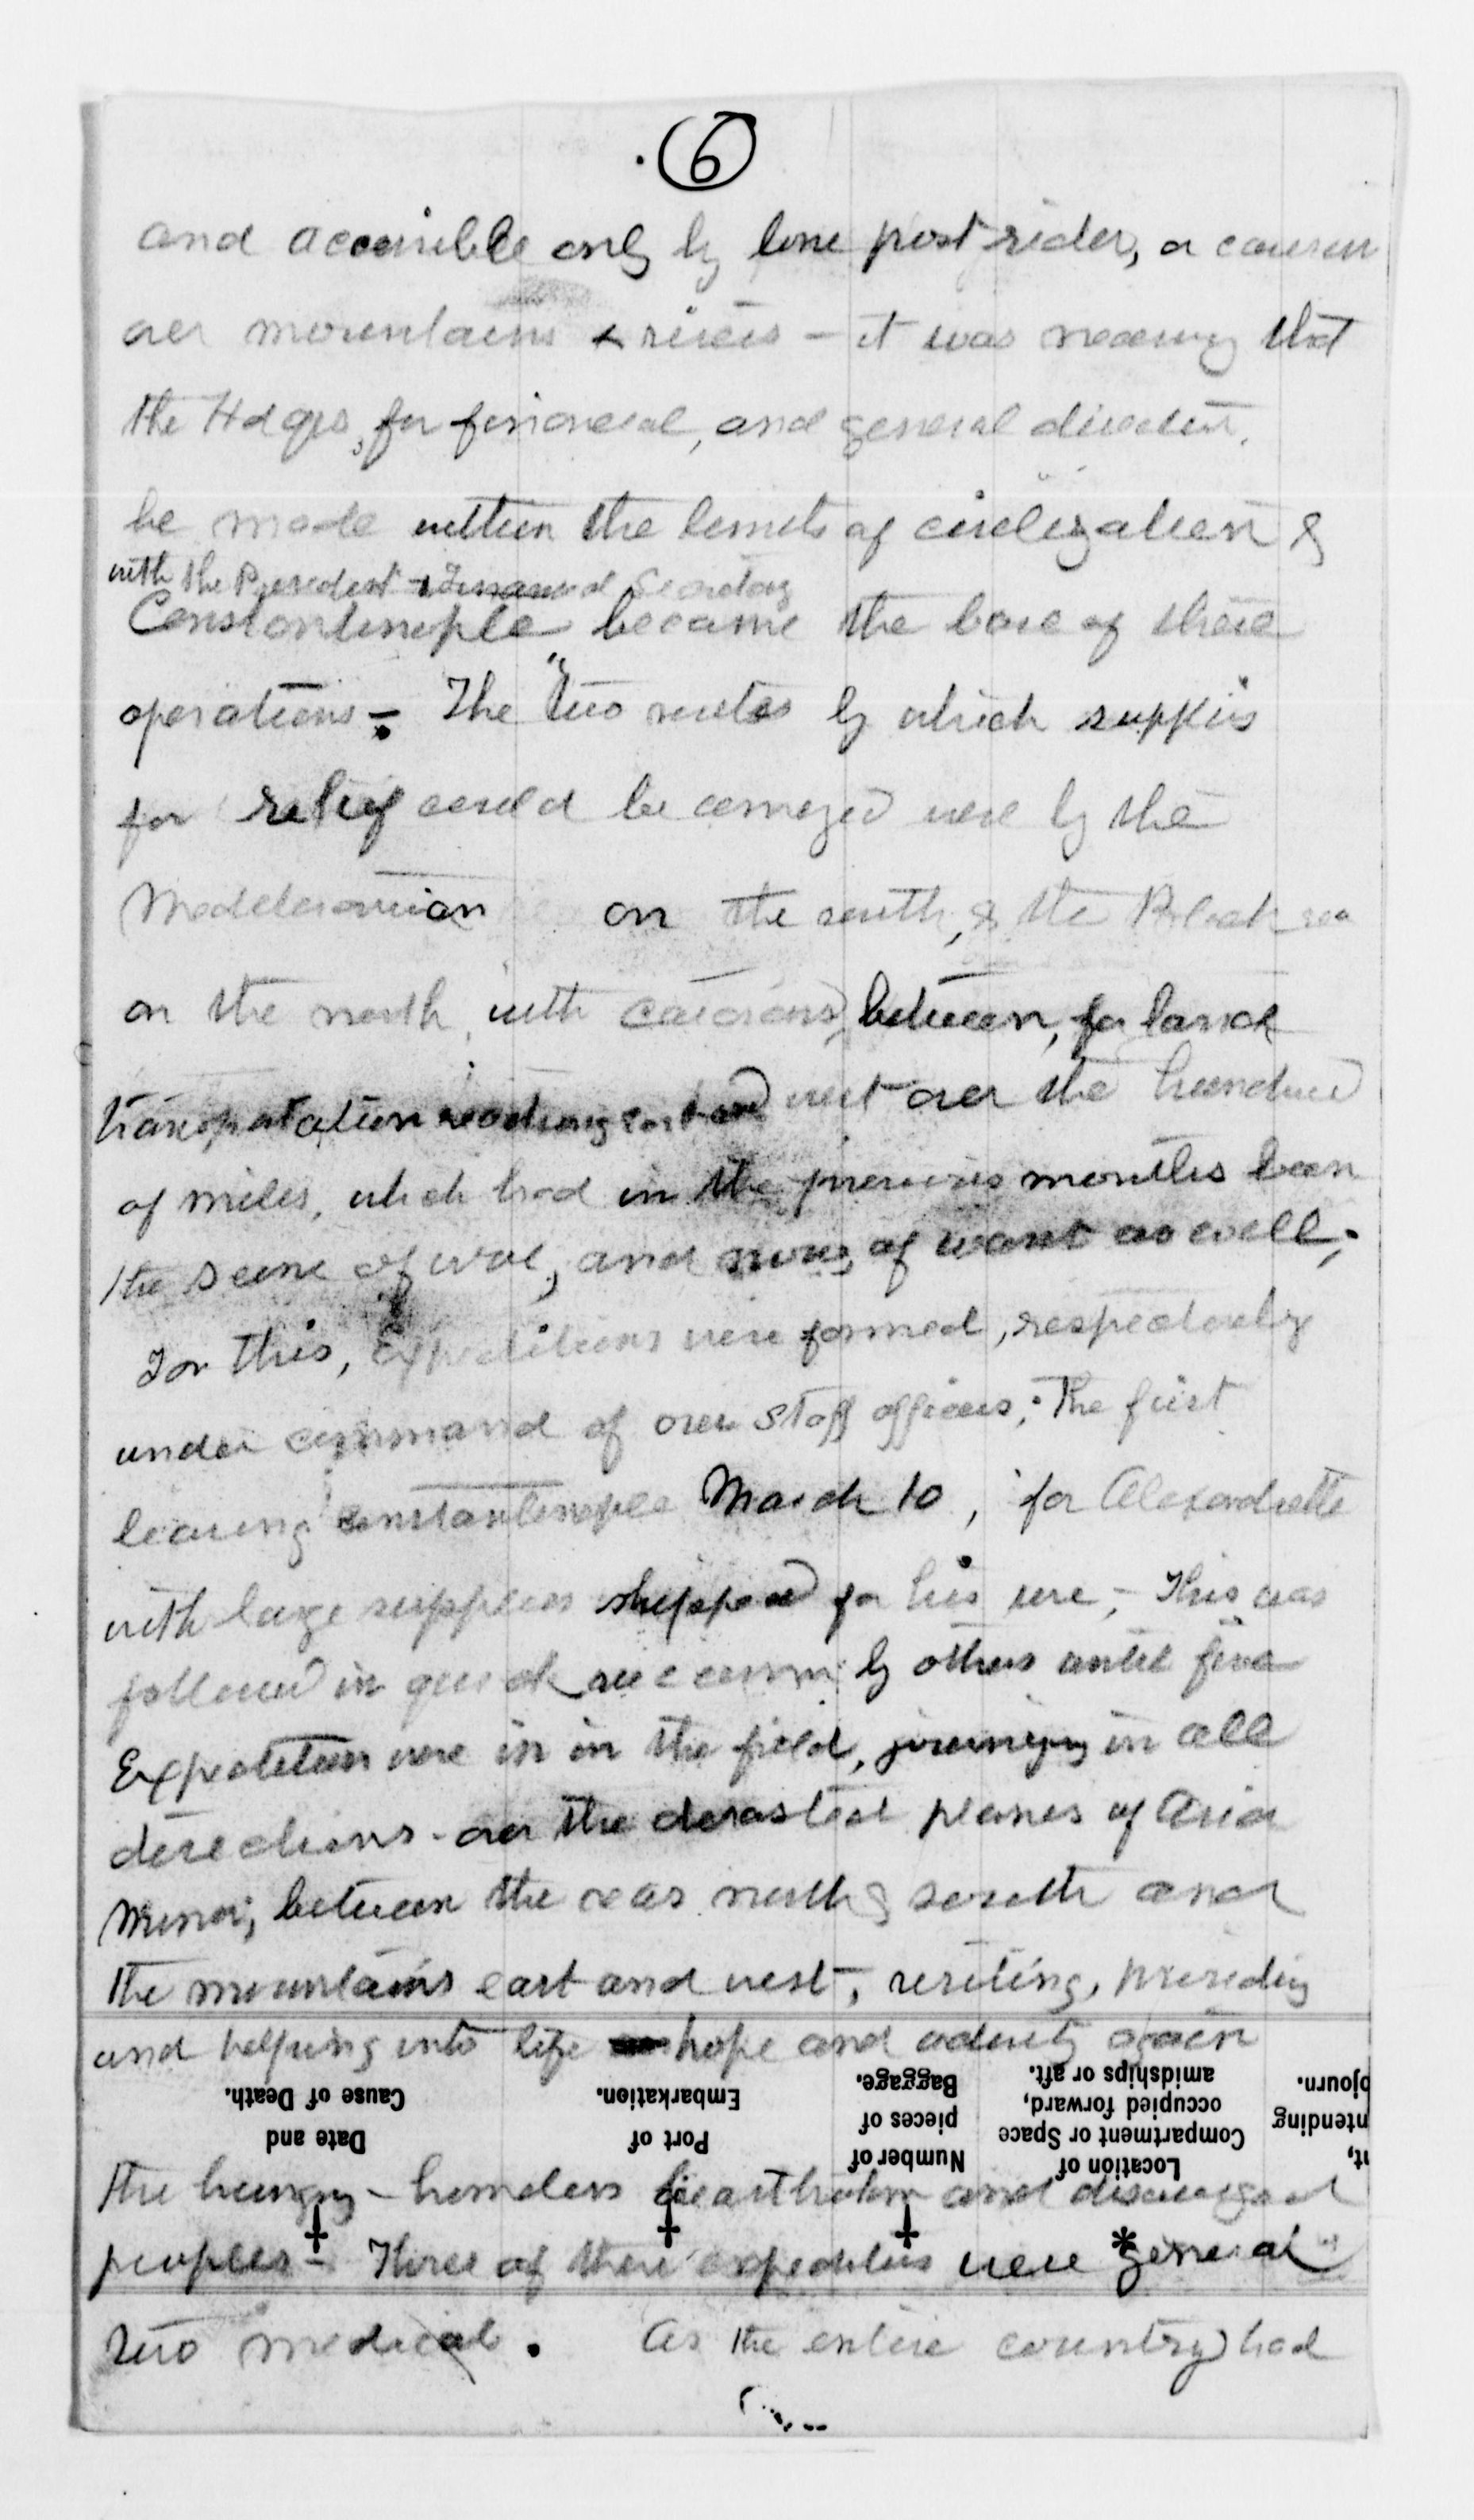 6
and accessible only by lone post rider, or caravan
over mountains & rivers – it was necessary that
the Hdqrs, for financial, and general direction,
be made within the limits of civilization &
with the President & Financial Secretary
Constantinople became the base of these
operations – The two routes by which supplies
for relief could be conveyed were by the
Mediterranian on the south, & the Black sea
on the north, with caravans, between, for land
transportation reaching east and west over the hundred
of miles, which had in the previous months been
the scene of woe, and now, of want as well;
For this, Expeditions were formed, respectively
under command of over staff officers; The first
leaving Constantinople March 10, for Alexandrette
with large supplies shipped for his use, – This was
followed in quick succession by others until five
Expedition were in in the field, journeying in all
directions – over the devasted planes of Asia
Minor, between the seas north & south and
the mountains east and west, resciting, providing
and helping into life hope and activity again
Date and Cause of Death.
Port of Embarkation.
Number of pieces of Baggage.
Location of Compartment or Space occupied forward, amidships or aft.
ntending
ojourn.
the hungry – homeless heartbroken and discouraged
† † † *
peoples – Three of these expeditions were "general"
two medical. As the entire country had